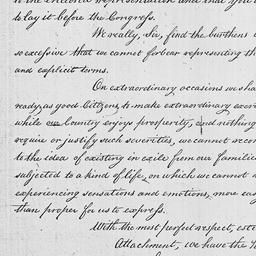 to the enclosed representation and that you
to lay it before the Congress.
We really, Sir, find the burthens
so excessive that we cannot forbear representing th
and explicit terms.
On extraordinary occasions we sha
ready, as good Citizens, to make extraordinary exer
while our Country enjoys prosperity, and nothing
require or justify such severities, we cannot recon
to the idea of existing in exile from our families
subjected to a kind of life, on which we cannot
experiencing sensations and emotions, more eas
than proper for us to express.
With the most perfect respect, este
Attachment, we have the h